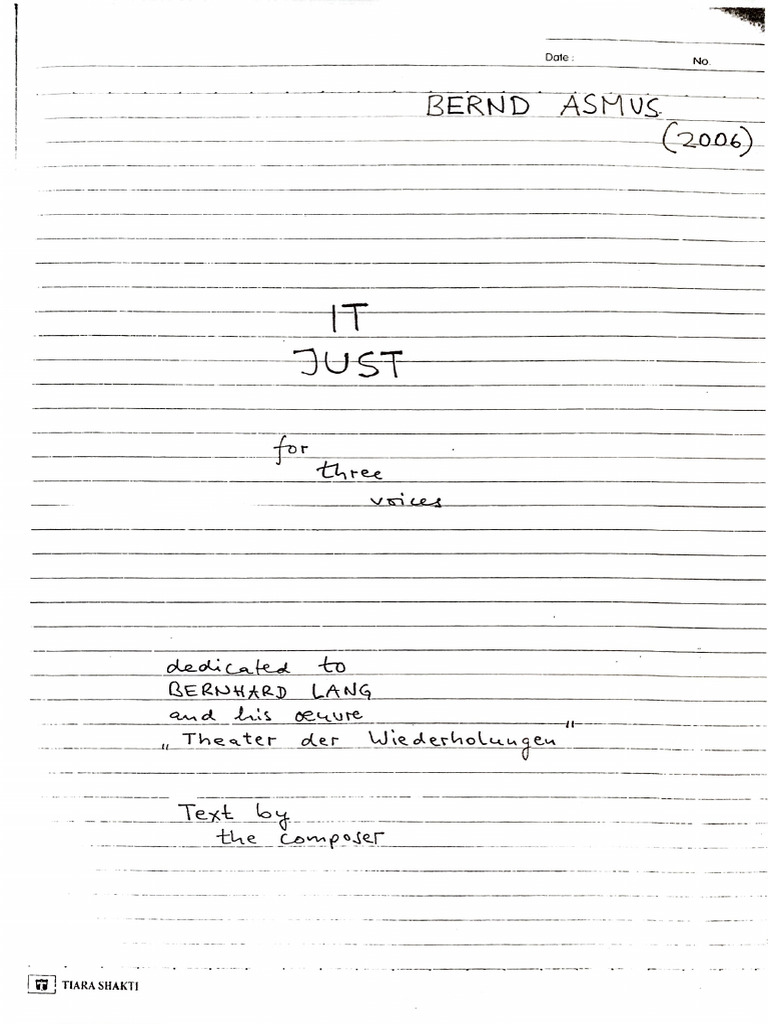 Date :
No.
BERND ASMUS
(2006)
IT
JUST
for
three
voices
dedicated to
BERNHARD LANG
and his œuvre
„Theater der Wiederholungen"
Text by
the composer
TIARA SHAKTI